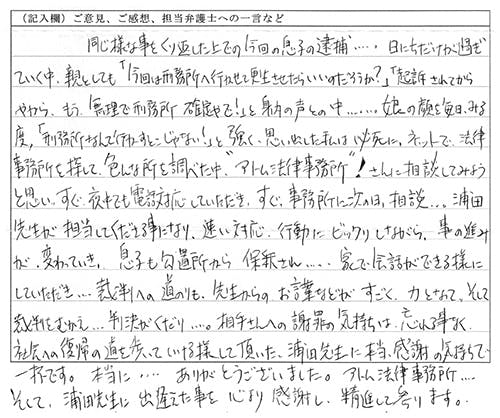 (記入欄)ご意見、ご感想、担当弁護士への一言など
同じ様な事をくり返した上での今回の息子の逮捕‥‥日にちだけが過ぎ
ていく中、親としても「今回は刑務所へ行かせて更生させたらいいのだろうか?」「起訴されてから
やから、もう、無理で刑務所確定やで!」と身内の声との中……娘の顔を毎日、みる
度、「刑務所なんて行かすとこじゃない!」と強く、思い出した私は必死に、ネットで、法律
事務所を探して、色んな所を調べた中、"アトム法律事務所"!さんに相談してみよう
と思い、すぐ、夜中でも電話対応していただき、すぐ、事務所に次の日、相談…。浦田
先生が担当してくださる事になり、速い対応、行動にビックリしながら、事の進み
が、変わっていき、息子も勾置所から保釈され‥‥、家で会話ができる様に
していただき…裁判への道のりも、先生からのお言葉などがすごく、力となって、そして
裁判をむかえ…判決がくだり…。相手さんへの謝罪の気持ちは、忘れる事なく、
社会への復帰の道を歩んでいける様して頂いた、浦田先生に本当、感謝の気持ちで
一杯です。本当に‥‥ありがとうございました。アトム法律事務所…
そして、浦田先生に出逢えた事を心より感謝し、精進して参ります。